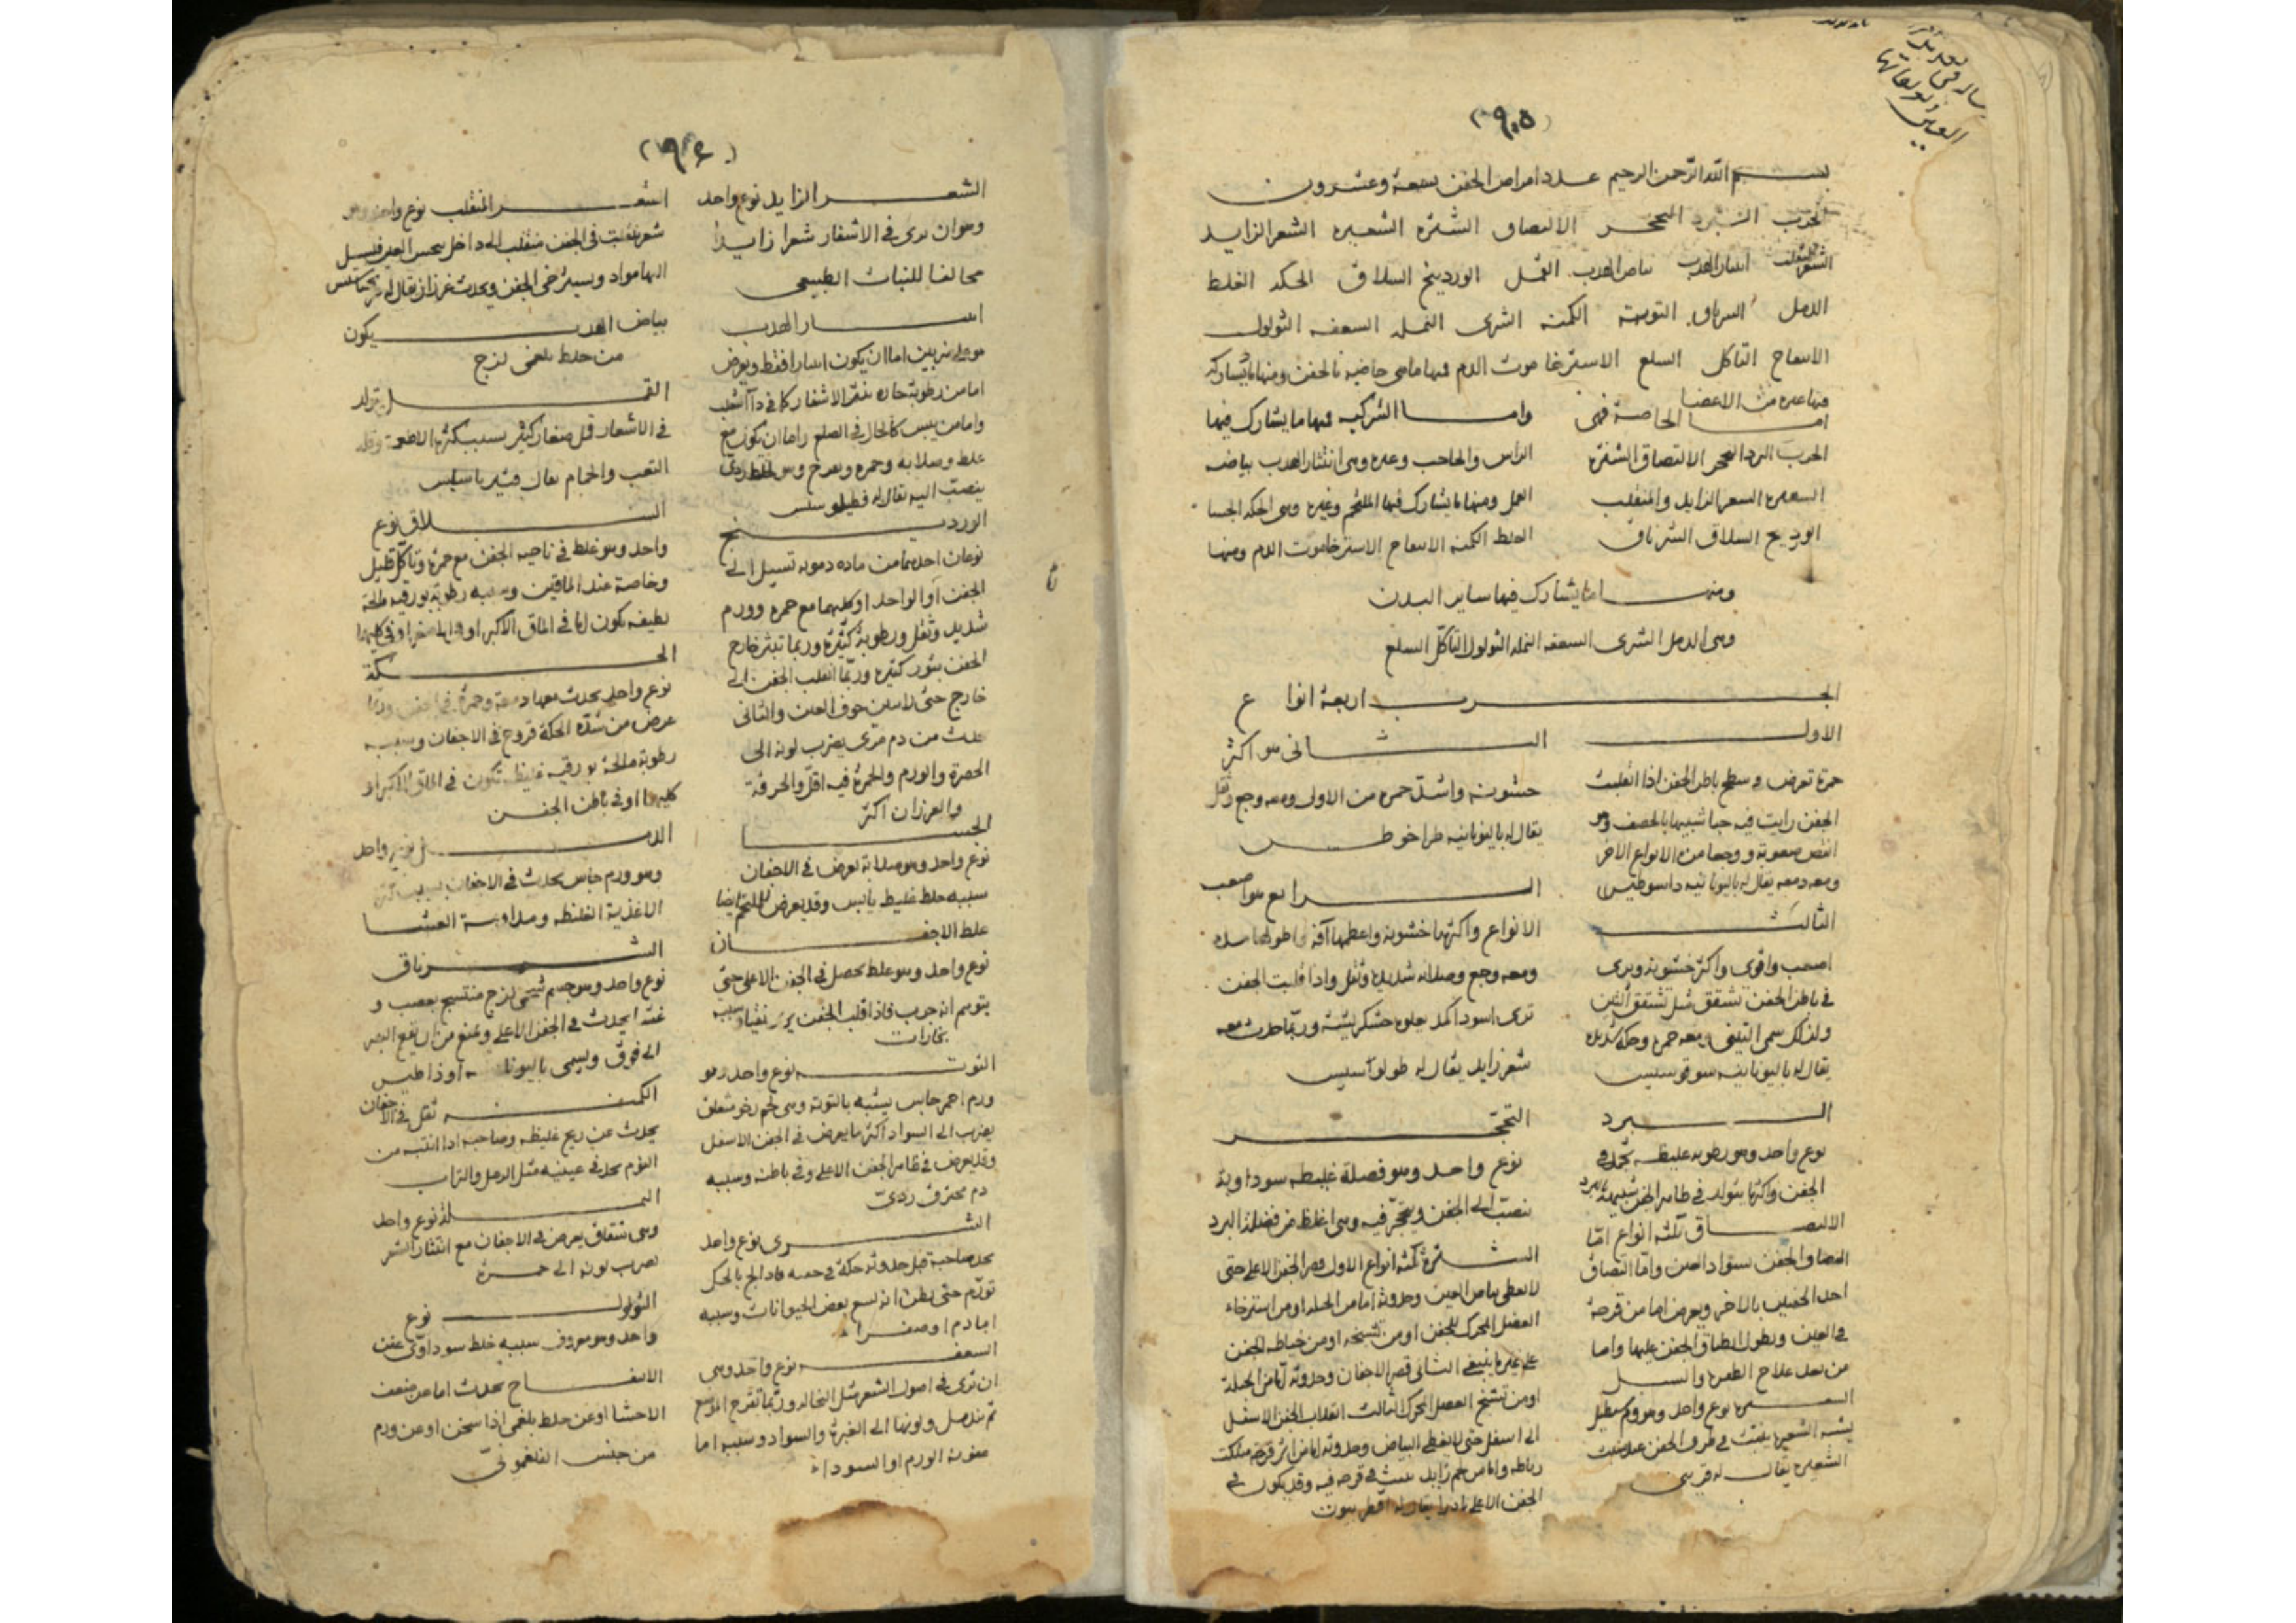 بسم الله الرحمن الرحيم عدد امراض الجفن تسعة وعشرون
الجرب البرد التحجر الالتصاق الشترة الشعيرة الشعر الزايد
الشعر المنقلب انتثار الهدب بياض الهدب القمل الوردينج السلاق الحكه الغلظ
الدمل الشرناق التوتة الكمنه الشرى النمله السعفه الثولول
الانتفاخ التاكل السلع الاسترخا موت الدم فمنها ما هى خاصية بالجفن ومنها ما يشارك
فيها غيره من الاعضا
اما الخاصة فهى
الجرب البرد التحجر الالتصاق الشترة
الشعيره الشعر الزايد والمنقلب
الوردينج السلاق الشرناق
واما الشركيه فمنها ما يشارك فيها
الراس والحاجب وغيره وهى انتثار الهدب بياضه
القمل ومنها ما يشارك فيها الملتحم وغيره وهى الحكه الجسا
الغلظ الكمنه الانتفاخ الاسترخا موت الدم ومنها
ومنها ما يشارك فيها ساير البدن
وهى الدمل الشرى السعفه النمله الثولول التآكل السلع
الجرب اربعة انواع
الاول
حمرة تعرض فى سطح باطن الجفن اذا انقلبت
الجفن رايت فيه حبا شبيها بالحصف وهو
انقص صعوبة ووجعا من الانواع الاخر
ومعه دمعه يقال له باليونانيه داسوطيس
الثانى هو اكثر
خشونه واشد حمره من الاول ومعه وجع وثقل
يقال له باليونانيه طراخوطس
الثالث
اصعب واقوى واكثر خشونة ويرى
فى باطن الجفن تشقق مثل تشقق التين
ولذلك سمى التينى ومعه حمره وحكه شديده
يقال له باليونانيه سوقوسيس
الرابع هو اصعب
الانواع واكثرها خشونة واعظمها آفة واطولها مدة
ومعه وجع وصلابه شديده وثقل واذا قلبت الجفن
ترى اسود اكمد يعلوه خشكريشة وربما حدث معه
شعر زايد يقال له طولوسيس
البرد
نوع واحد وهو رطوبه غليظه تجمد فى
الجفن واكثرها يتولد فى ظاهر الجفن شبيهة بالبرد
التحجر
نوع واحد وهو فضلة غليظه سوداوية
تنصب الى الجفن ويتحجر فيه وهى اغلظ من فضلة البرد
الالتصاق ثلثه انواع اما
التصاق الجفن بسواد العين واما التصاق
احد الجفنين بالاخر ويعرض اما من قرحة
فى العين ويطول انطباق الجفن عليها واما
من بعد علاج الظفره والسبل
الشعيره نوع واحد وهو ورم مستطيل
يشبه الشعيره ينبت فى طرف الجفن
الشعيره يقال له قريثى
الشترة ثلثه انواع الاول قصر الجفن الاعلى حتى
لا يغطى بياض العين وحدوثه اما من الجبله او من استرخاء
العضل المحرك للجفن او من تشنجه او من خياطه الجفن
على غير ما ينبغى الثانى قصر الاجفان وحدوثه اما من الجبلة
او من تشنج العضل المحرك الثالث انقلاب الجفن الاسفل
الى اسفل حتى لا يغطى البياض وحدوثه اما من اثر قرحة
رباطه واما من لحم زايد ينبت فى قرحه فيه وقد يكون فى
الجفن الاعلى نادرا يقال له اقطربيون
الشعر الزايد نوع واحد
وهو ان يرى فى الاشفار شعرا زايدا
مخالفا للنبات الطبيعى
انتثار الهدب
هو على ضربين اما ان يكون انتثارا فقط ويعرض
اما من رطوبة حاده تنثر الاشفار كما فى داء الثعلب
واما من يبس كالحال فى الصلع واما ان يكون مع
غلظ وصلابه وحمره وتقرح ومن خلط ردى
ينصب اليه يقال له فطيلوسس
الوردينج
نوعان احدهما من ماده دمويه تسيل الى
الجفن او الواحد او كليهما مع حمره وورم
شديد وثقل ورطوبة كثيرة وربما تبثر خارج
الجفن بثور كثيره وربما انقلب الجفن الى
خارج حتى لا يبين جوف العين والثانى
يحدث من دم مرى يضرب لونه الى
الحصرة والورم والحمرة فيه اقل والحرقة
والغرزان اكثر
الجسا
نوع واحد وهو صلابة يعرض فى الاجفان
سببه خلط غليظ يابس وقد يعرض للملتحم ايضا
غلظ الاجفان
نوع واحد وهو غلظ يحصل فى الجفن الاعلى حتى
يتوهم انه جرب فاذا قلب الجفن يرى نقيا وسببه
بخارات
التوتة نوع واحد وهو
ورم احمر جاس يشبه بالتوته وهى لحم رخو متعلق
يضرب الى السواد اكثر ما يعرض فى الجفن الاسفل
وقد يعرض فى ظاهر الجفن الاعلى وفى باطنه وسببه
دم محترق ردى
الشرى نوع واحد
يجد صاحبه قبل حدوثه حكة فى جفنه فاذا الح بالحك
تورم حتى يظن انه لسع بعض الحيوانات وسببه
اما دم او صفراء
السعفه نوع واحد وهى
ان ترى فى اصول الشعر مثل النخاله وربما تقرح الموضع
ثم تندمل ولونها الى الغبرة والسواد وسببه اما
عفونة الورم او السوداء
الشعر المنقلب نوع واحد وهو
شعر ينبت فى الجفن منقلب الى داخل ينخس العين فيسيل
اليها مواد ويسترخى الجفن ويحدث غرزان يقال له
بياض الهدب يكون
من خلط بلغمى لزج
القمل يتولد
فى الاشعار قمل صغار كثير بسبب كثرة الاطعمة وقلة
التعب والحمام يقال فثيرياسيس
السلاق نوع
واحد وهو غلظ فى ناحيه الجفن مع حمرة وتآكل قليل
وخاصة عند الماقين وسببه رطوبة بورقيه مالحة
لطيفه تكون اما فى الماق الاكبر او فى الاصغر او فى كليهما
الحكة
نوع واحد يحدث معها دمعة وحمرة فى الجفن وربما
عرض من شدة الحكة قروح فى الاجفان وسببه
رطوبة مالحة بورقيه غليظه تكون فى الماق الاكبر او
كليهما او فى باطن الجفن
الدمل نوع واحد
وهو ورم جاس يحدث فى الاجفان بسبب كثرة
الاغذية الغليظه ومداومة العشا
الشرناق
نوع واحد وهو جسم شحمى لزج منتسج بعصب و
غشاء يحدث فى الجفن الاعلى ويمنع من ان يقع البصر
الى فوق ويسمى باليونانيه اوذاطيس
الكمنه ثقل فى الاجفان
يحدث عن ريح غليظه وصاحبه اذا انتبه من
النوم يجد فى عينيه مثل الرمل والتراب
النملة نوع واحد
وهى شقاق يعرض فى الاجفان مع انتثار الشعر
يضرب لونه الى حمرة
الثولول نوع
واحد وهو معروف سببه خلط سوداوى عفن
الانتفاخ يحدث اما من ضعف
الاحشا او عن خلط بلغمى اذا سخن او عن ورم
من جنس الفلغمونى